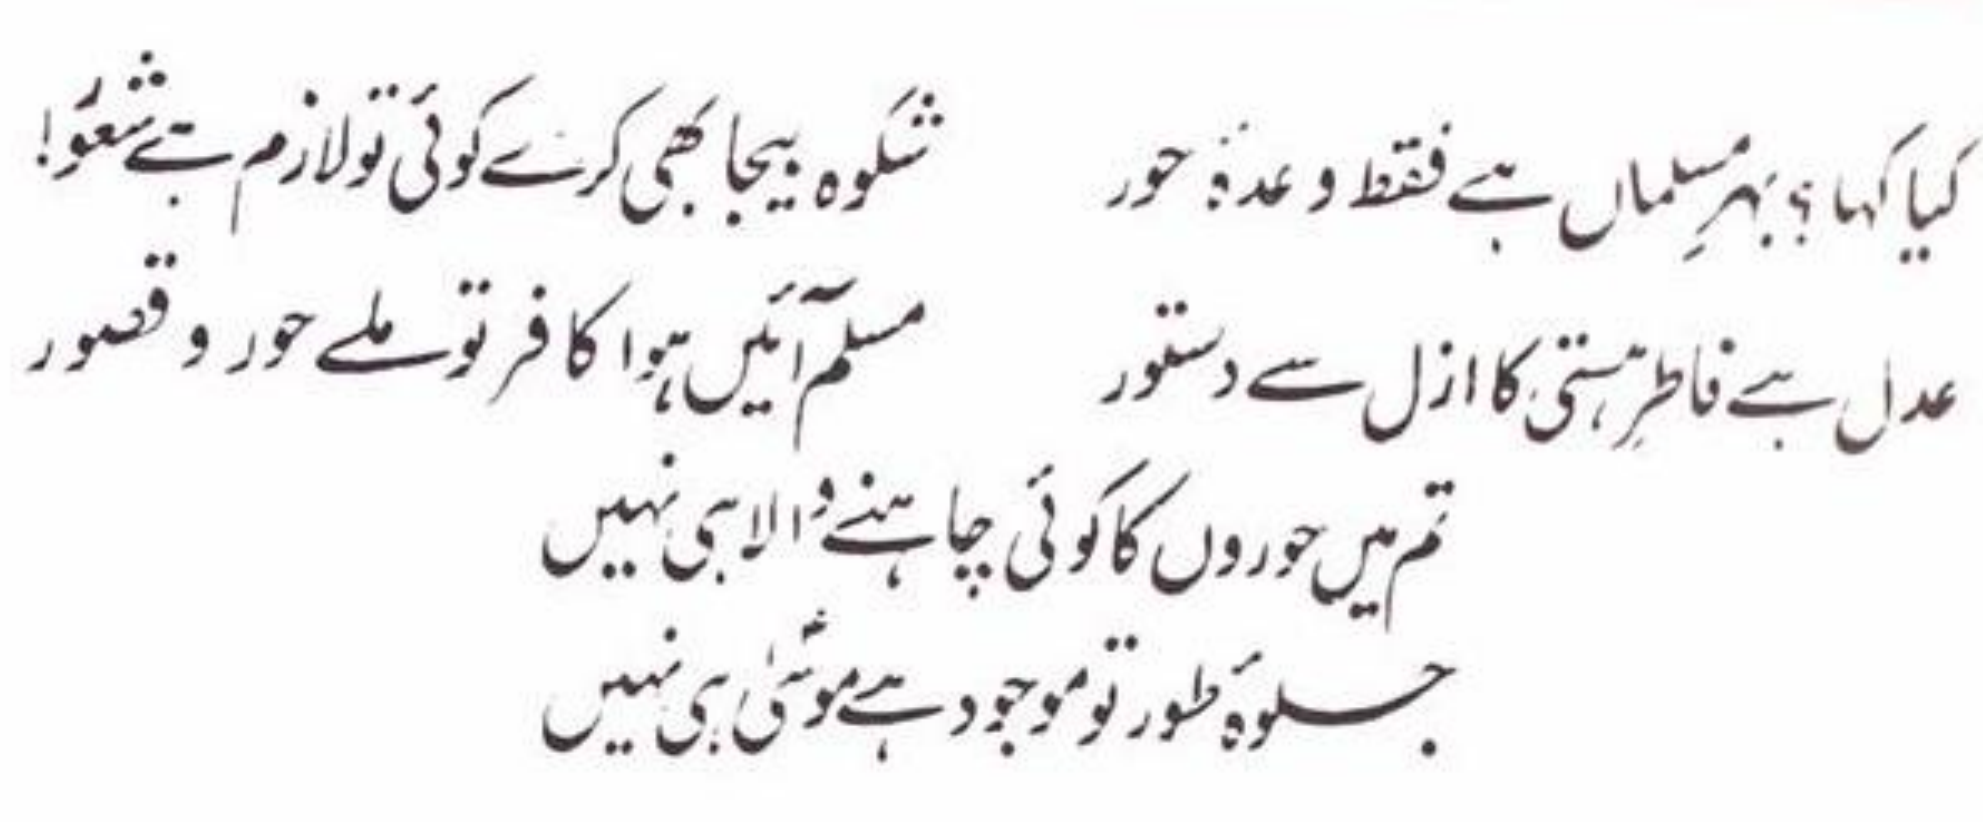 کیا کہا؟ بہرِ مسلماں ہے فقط وعدۂ حور
شکوہ بیجا بھی کرے کوئی تو لازم ہے شعور!
عدل ہے فاطرِ ہستی کا ازل سے دستور
مسلم آئیں ہوا کافر تو ملے حور و قصور
تم میں حوروں کا کوئی چاہنے والا ہی نہیں
جلوۂ طور تو موجود ہے موسیٰؑ ہی نہیں